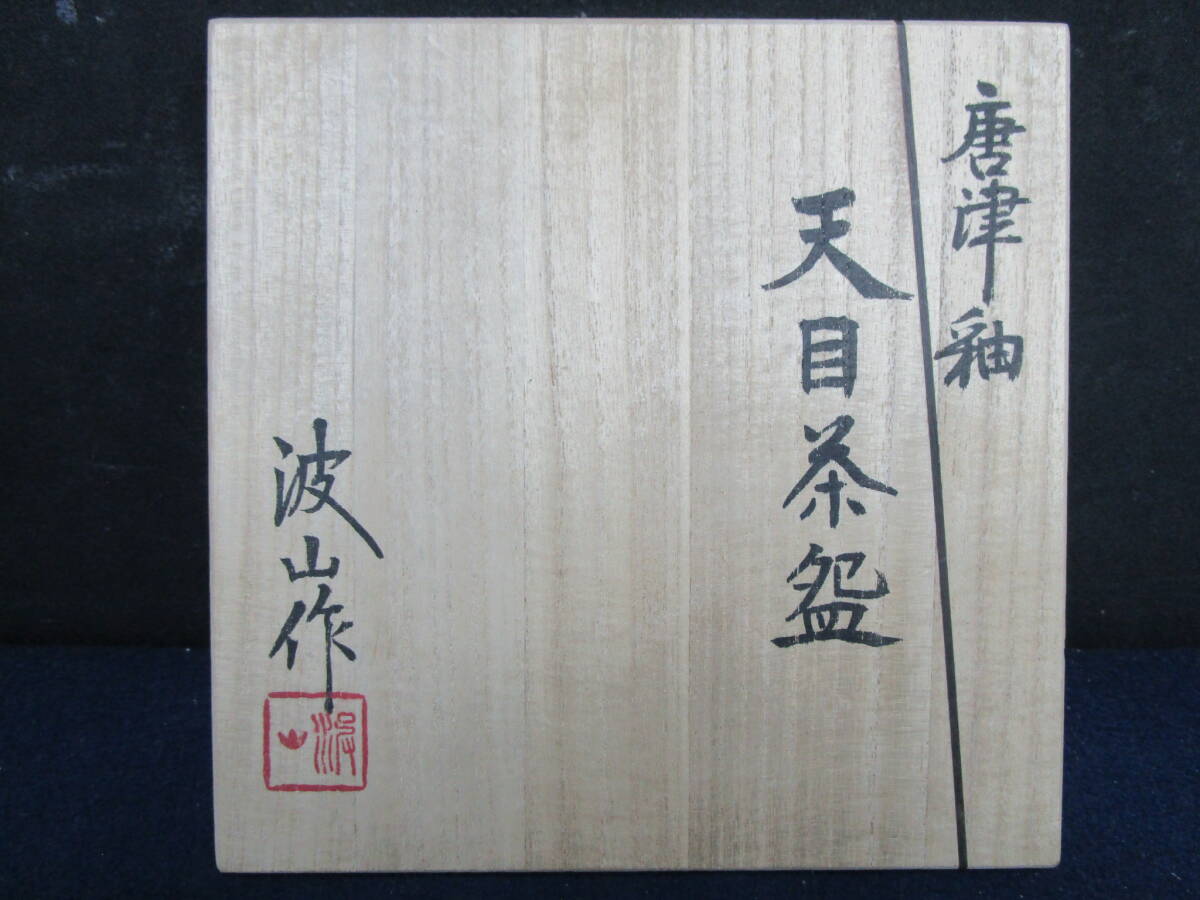 唐津釉
天目茶盌
波山作
波山